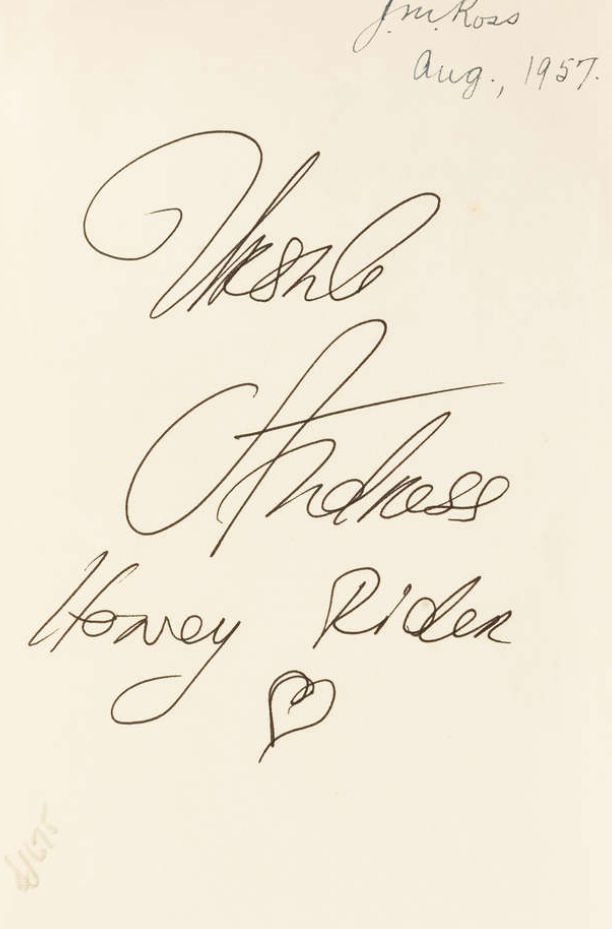 J.M. Ross
Aug., 1957.
Ursula
Andress
Honey Rider